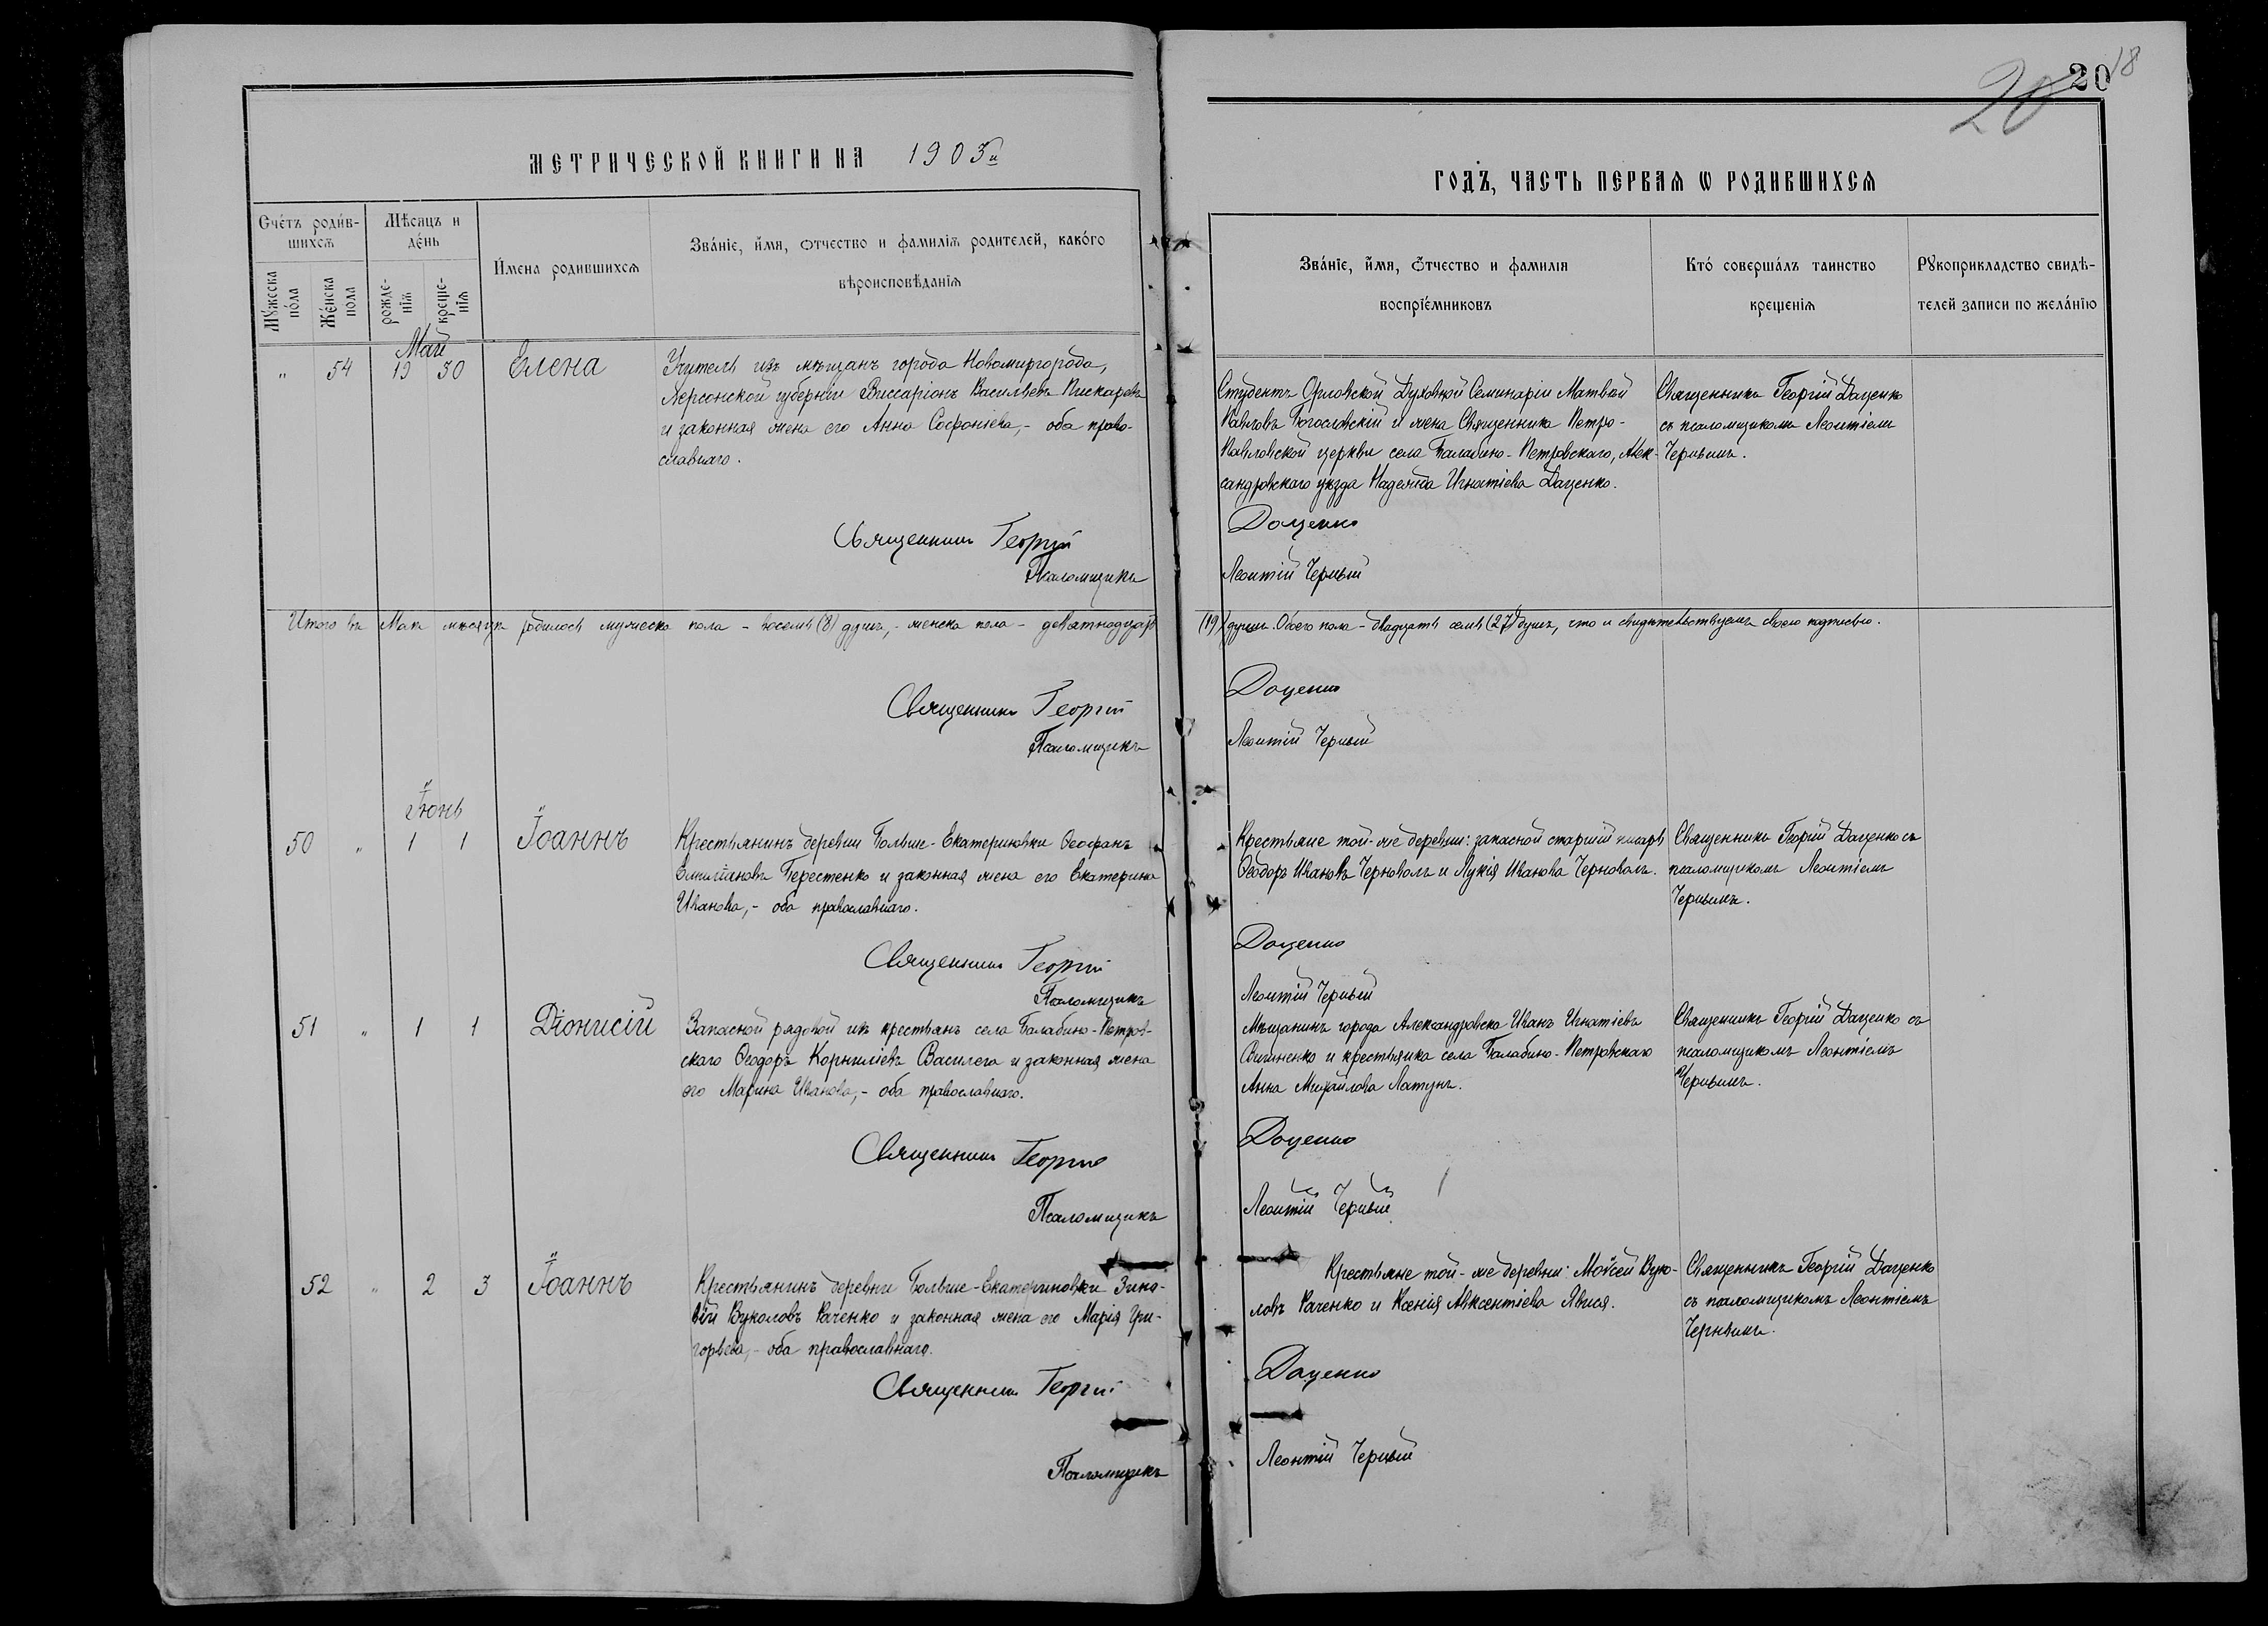 20
20
18
МЕТРИЧЕСКОЙ КНИГИ НА 1903й
ГОДЪ, ЧАСТЬ ПЕРВАЯ Ѡ РОДИВШИХСЯ
Счетъ родив-
шихся
Мужеска
пола
Женска
пола
Мѣсяцъ и
день
рожде-
нія
креще-
нія
Имена родившихся
Званіе, имя, отчество и фамилія родителей, какого
вѣроисповѣданія
Званіе, имя, отчество и фамилія
воспріемниковъ
Кто совершалъ таинство
крещенія
Рукоприкладство свидѣ-
телей записи по желанію
Май
" 54 19 30 Елена
Учитель изъ мѣщанъ города Новомиргорода,
Херсонской губерніи Виссаріонъ Васильевъ Пискаревъ
и законная жена его Анна Софоніева,- оба право-
славнаго.
Студентъ Орловской Духовной Семинаріи Матвѣй
Павловъ Богословскій и жена Священника Петро-
Павловской церкви села Балабино-Петровскаго, Алек-
сандровскаго уѣзда Надежда Игнатіева Даценко.
Священникъ Георгій Даценко
съ псаломщикомъ Леонтіемъ
Чернымъ.
Священникъ Георгій Даценко
Псаломщикъ Леонтій Черный
Итого въ Маѣ мѣсяцѣ родилось мужеска пола - восемь (8) душъ,- женска пола - девятнадцать (19) душъ. Обоего пола - двадцать семь (27) душъ, что и свидѣтельствуемъ своею подписью.
Священникъ Георгій Даценко
Псаломщикъ Леонтій Черный
Іюнь
50 " 1 1 Іоаннъ
Крестьянинъ деревни Больше-Екатериновки Ѳеофанъ
Емиліановъ Берестенко и законная жена его Екатерина
Иванова,- оба православнаго.
Крестьяне той-же деревни: запасной старшій писарь
Ѳеодоръ Ивановъ Черноволъ и Лукія Иванова Черноволъ.
Священникъ Георгій Даценко съ
псаломщикомъ Леонтіемъ
Чернымъ.
Священникъ Георгій Даценко
Псаломщикъ Леонтій Черный
51 " 1 1 Діонисій
Запасной рядовой изъ крестьянъ села Балабино-Петров-
скаго Ѳеодоръ Корниліевъ Василега и законная жена
его Марина Иванова,- оба православнаго.
Мѣщанинъ города Александровска Иванъ Игнатіевъ
и крестьянка села Балабино-Петровскаго
Анна Михайлова Латунъ.
Священникъ Георгій Даценко съ
псаломщикомъ Леонтіемъ
Чернымъ.
Священникъ Георгій Даценко
Псаломщикъ Леонтій Черный
52 " 2 3 Іоаннъ
Крестьянинъ деревни Больше-Екатериновки Зино-
вій Вуколовъ Раченко и законная жена его Марія Гри-
горьева,- оба православнаго.
Крестьяне той-же деревни: Мойсей Вуко-
ловъ Раченко и Ксенія Авксентіева Явися.
Священникъ Георгій Даценко
съ псаломщикомъ Леонтіемъ
Чернымъ.
Священникъ Георгій Даценко
Псаломщикъ Леонтій Черный